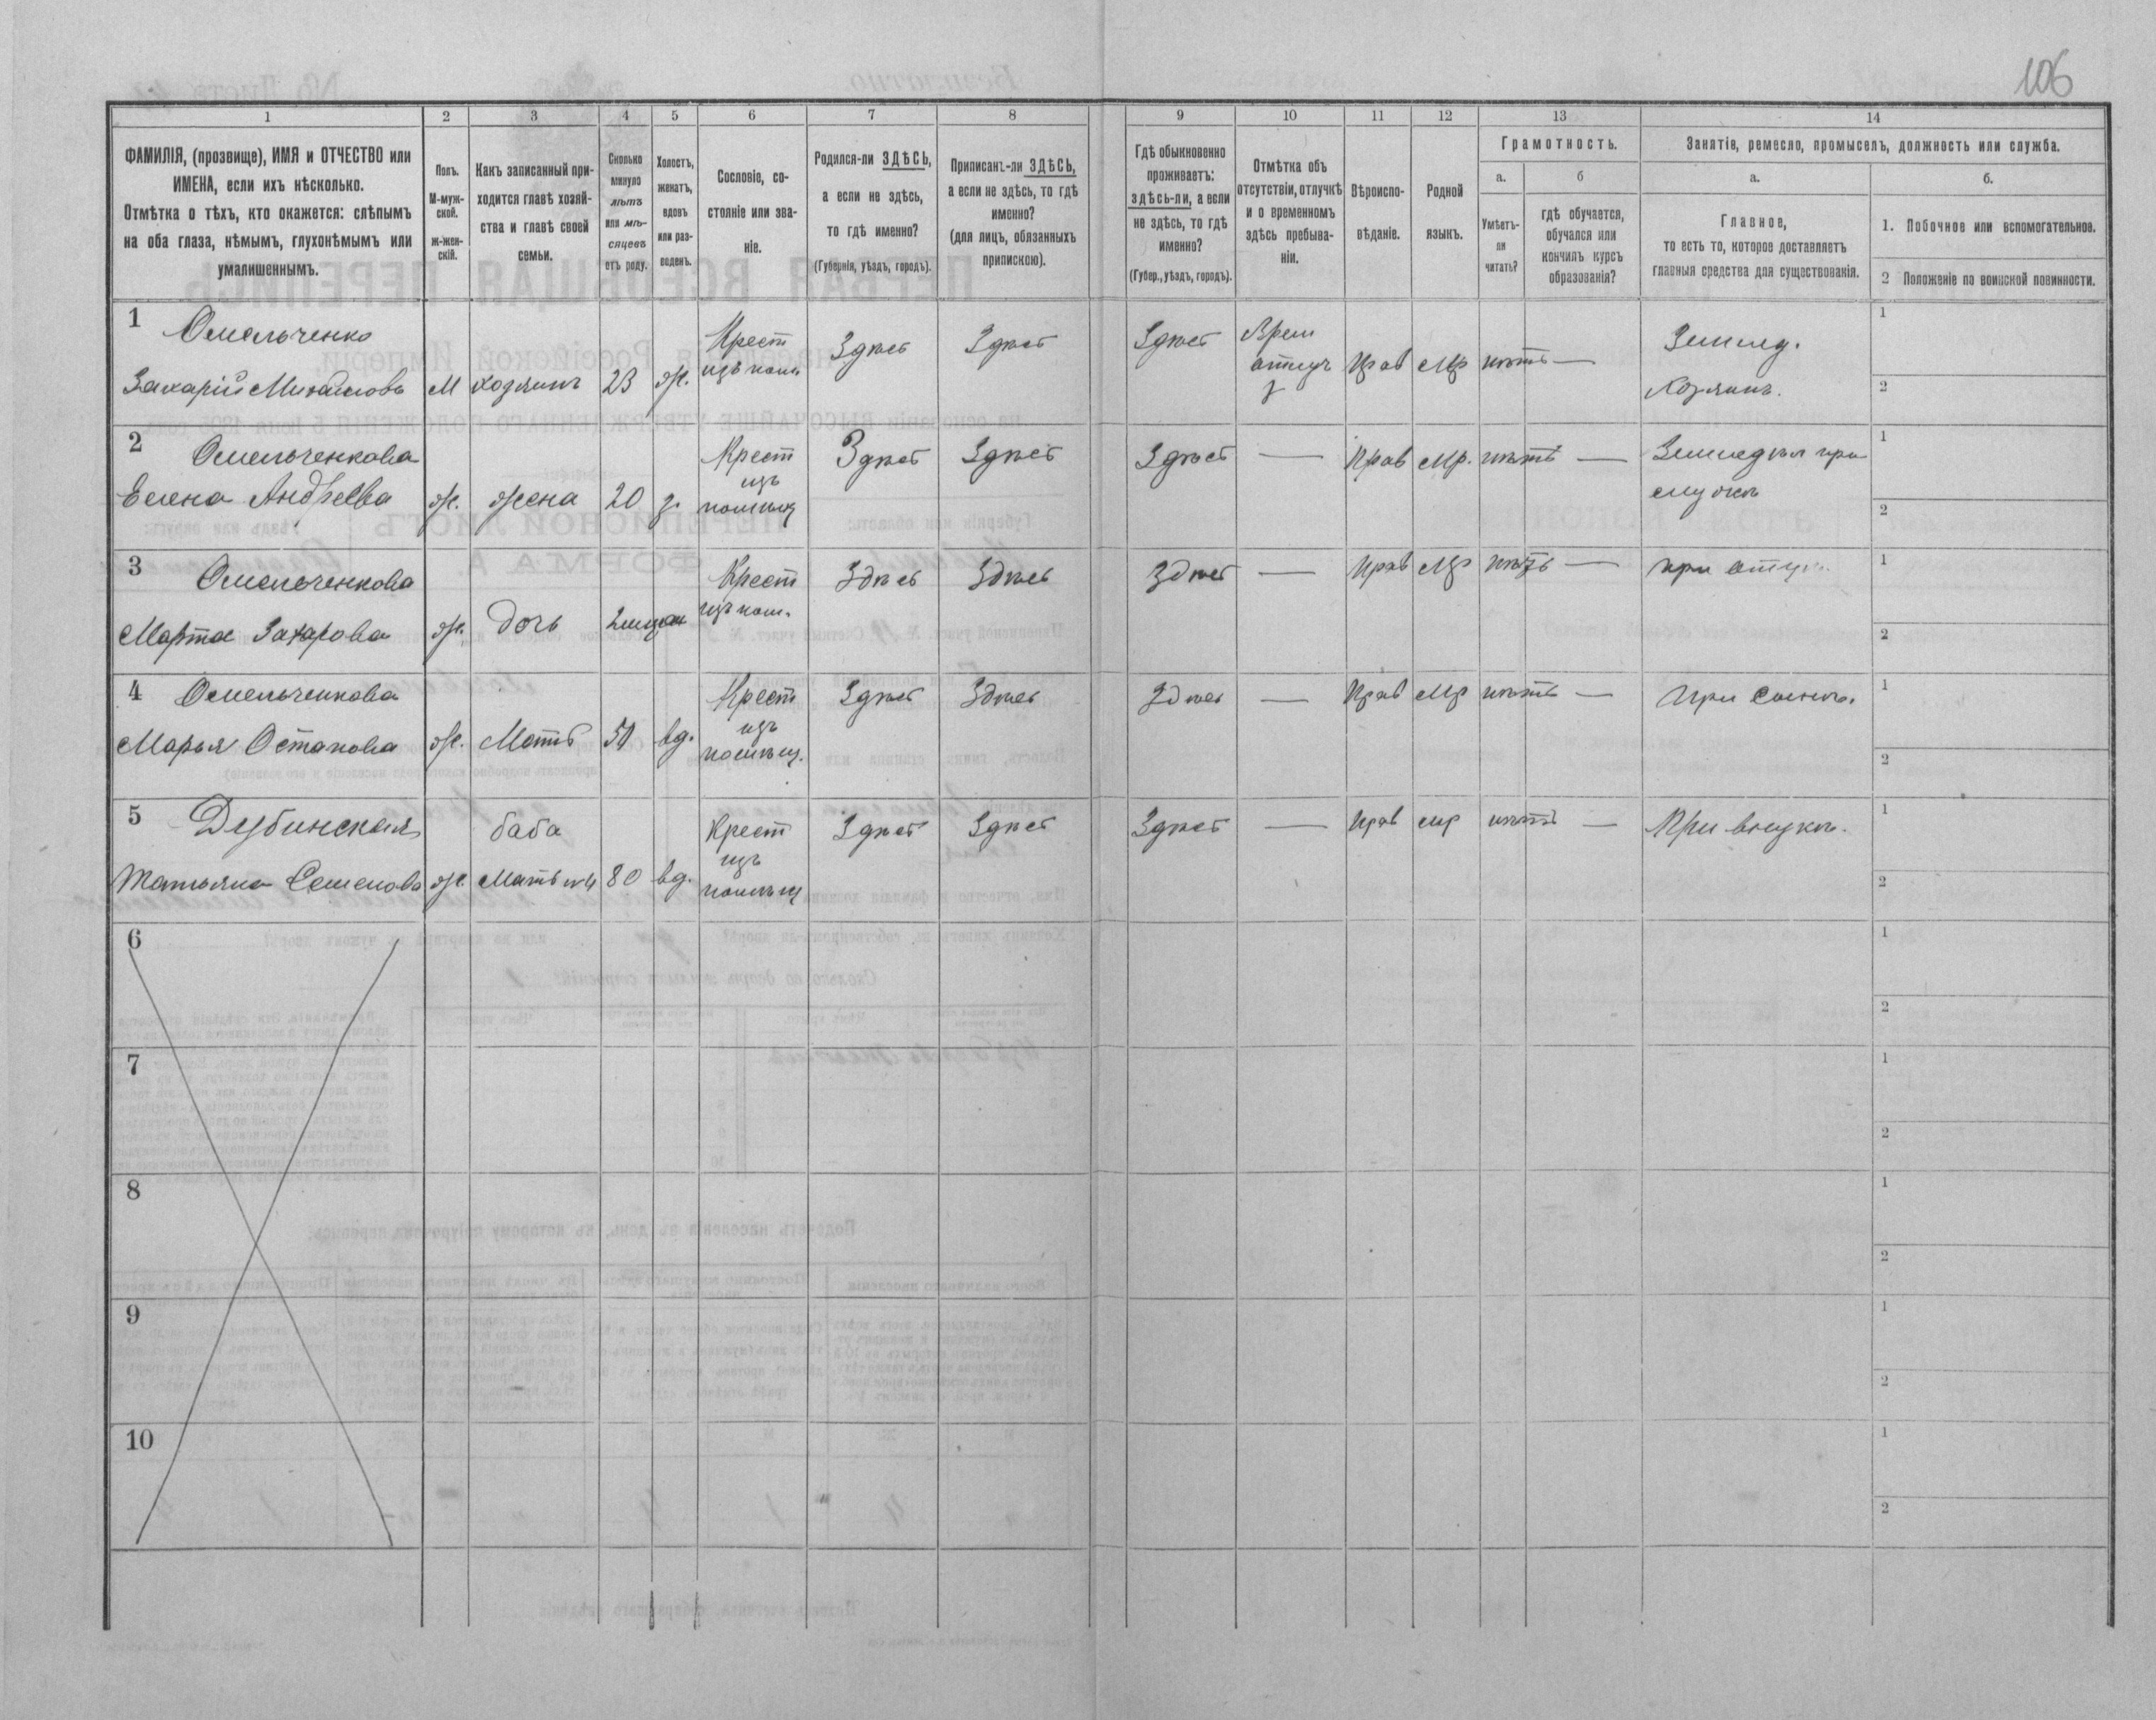 106
1 2 3 4 5 6 7 8 9 10 11 12 13 14
ФАМИЛІЯ, (прозвище), ИМЯ и ОТЧЕСТВО или
ИМЕНА, если ихъ нѣсколько.
Отмѣтка о тѣхъ, кто окажется: слѣпымъ
на оба глаза, нѣмымъ, глухонѣмымъ или
умалишеннымъ.
Полъ.
М-муж-
ской.
ж-жен-
скій.
Какъ записанный при-
ходится главѣ хозяй-
ства и главѣ своей
семьи.
Сколько
минуло
лѣтъ
или мѣ-
сяцевъ
отъ роду.
Холостъ,
женатъ,
вдовъ
или раз-
веденъ.
Сословіе, со-
стояніе или зва-
ніе.
Родился-ли ЗДѢСЬ,
а если не здѣсь,
то гдѣ именно?
(Губернія, уѣздъ, городъ).
Приписанъ-ли ЗДѢСЬ,
а если не здѣсь, то гдѣ
именно?
(для лицъ, обязанныхъ
припискою).
Гдѣ обыкновенно
проживаетъ:
здѣсь-ли, а если
не здѣсь, то гдѣ
именно?
(Губер., уѣздъ, городъ).
Отмѣтка объ
отсутствіи, отлучкѣ
и о временномъ
здѣсь пребыва-
ніи.
Вѣроиспо-
вѣданіе.
Родной
языкъ.
Грамотность.
а.
Умѣетъ-
ли
читать?
б
гдѣ обучается,
обучался или
кончилъ курсъ
образованія?
Занятіе, ремесло, промыселъ, должность или служба.
а.
Главное,
то есть то, которое доставляетъ
главныя средства для существованія.
б.
1. Побочное или вспомогательное.
2 Положеніе по воинской повинности.
1 Омельченко
Захарій Михайловъ М хозяинъ 23 ж. Крест
изъ пом Здѣсь Здѣсь Здѣсь Врем
отлуч
з Прав Мр нѣтъ — Землед.
Хозяинъ.
1
2
2 Омельченкова
Елена Андреева ж. жена 20 з. Крест
изъ
помѣщ Здѣсь Здѣсь Здѣсь — Прав Мр. нѣтъ — Земледѣл при
мужѣ
1
2
3 Омельченкова
Марта Захарова ж. дочь 2 мѣсяц Крест
изъ пом. Здѣсь Здѣсь Здѣсь — Прав Мр нѣтъ — при отцѣ.
1
2
4 Омельченкова
Марья Остапова ж. Мать вд. Крест
изъ
помѣщ. Здѣсь Здѣсь Здѣсь — Прав Мр нѣтъ — При сынѣ.
1
2
5 Дубинская
Татьяна Семенова ж. баба
Мать №4 80 вд. Крест
изъ
помѣщ Здѣсь Здѣсь Здѣсь — Прав мр нѣтъ — При внукѣ.
1
2
6
1
2
7
1
2
8
1
2
9
1
2
10
1
2